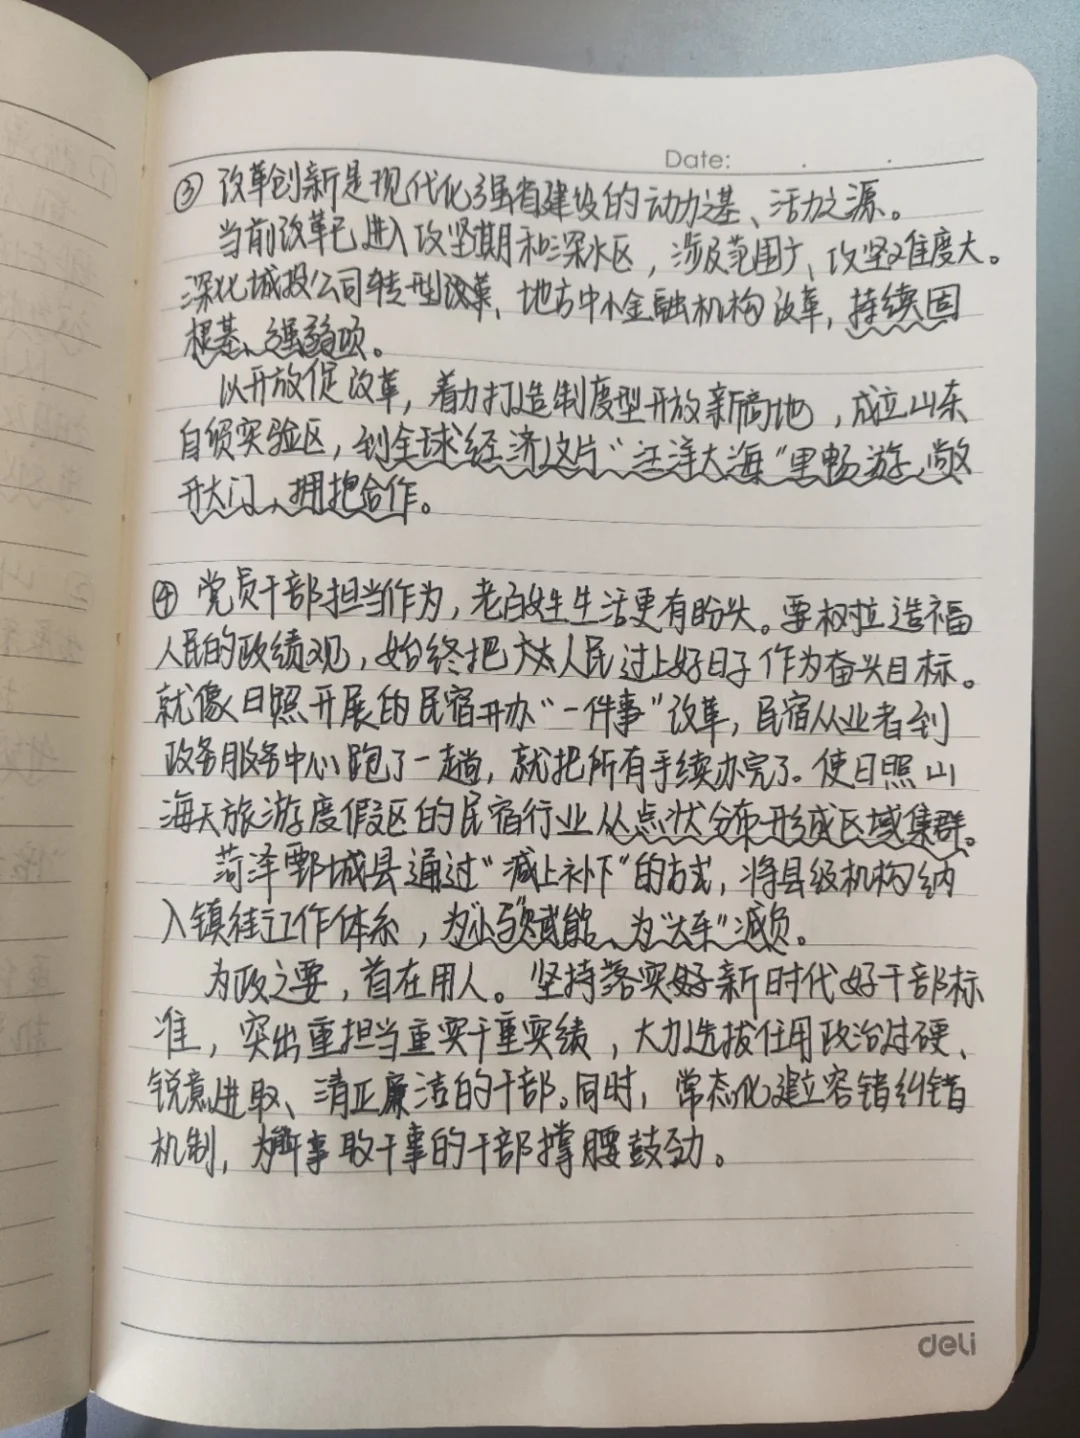 Date:
③ 改革创新是现代化强省建设的动力之基、活力之源。
当前改革已进入攻坚期和深水区，涉及范围广、攻坚难度大。
深化城投公司转型改革、地方中小金融机构改革，持续固
根基、强弱项。
以开放促改革，着力打造制度型开放新高地，成立山东
自贸实验区，到全球经济这片“汪洋大海”里畅游、敞
开大门、拥抱合作。
④ 党员干部担当作为，老百姓生活更有盼头。要树立造福
人民的政绩观，始终把 人民过上好日子作为奋斗目标。
就像日照开展的民宿开办“一件事”改革，民宿从业者到
政务服务中心跑了一趟，就把所有手续办完了。使日照山
海天旅游度假区的民宿行业从点状分布形成区域集群。
菏泽鄄城县通过“减上补下”的方式，将县级机构纳
入镇街工作体系，为“小马”赋能、为“大车”减负。
为政之要，首在用人。坚持落实好新时代好干部标
准，突出重担当重实干重实绩，大力选拔任用政治过硬、
锐意进取、清正廉洁的干部。同时，常态化建立容错纠错
机制，为 事敢干事的干部撑腰鼓劲。
deli